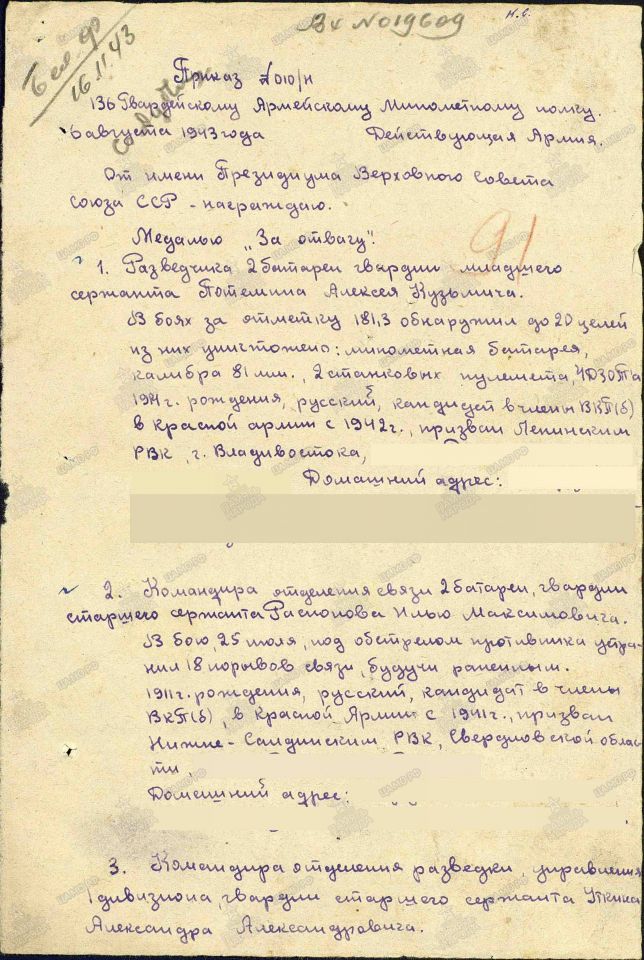 Вх №019609
Н.С.
16.11.43
Приказ №010/н
136 Гвардейскому Армейскому Минометному полку.
6 августа 1943 года Действующая Армия.
От имени Президиума Верховного Совета
Союза ССР - награждаю.
Медалью „За отвагу".
91
1. Разведчика 2 батареи гвардии младшего
сержанта Потемина Алексея Кузьмича.
В боях за отметку 181,3 обнаружил до 20 целей
из них уничтожено: минометная батарея,
калибра 81 мм., 2 станковых пулемета, 4 ДЗОТ'а
г. рождения, русский, кандидат в члены ВКП(б)
в красной армии с 1942 г., призван Ленинским
РВК, г. Владивостока,
Домашний адрес:
2. Командира отделения связи 2 батареи, гвардии
старшего сержанта Распопова Илью Максимовича.
В бою, 25 июля, под обстрелом противника устра-
нил 18 порывов связи, будучи раненным.
1911 г. рождения, русский, кандидат в члены
ВКП(б), в Красной Армии с 1941 г., призван
Нижне-Салдинским РВК, Свердловской облас-
ти,
Домашний адрес:
3. Командира отделения разведки, управления
1 дивизиона, гвардии старшего сержанта Уткина
Александра Александровича.